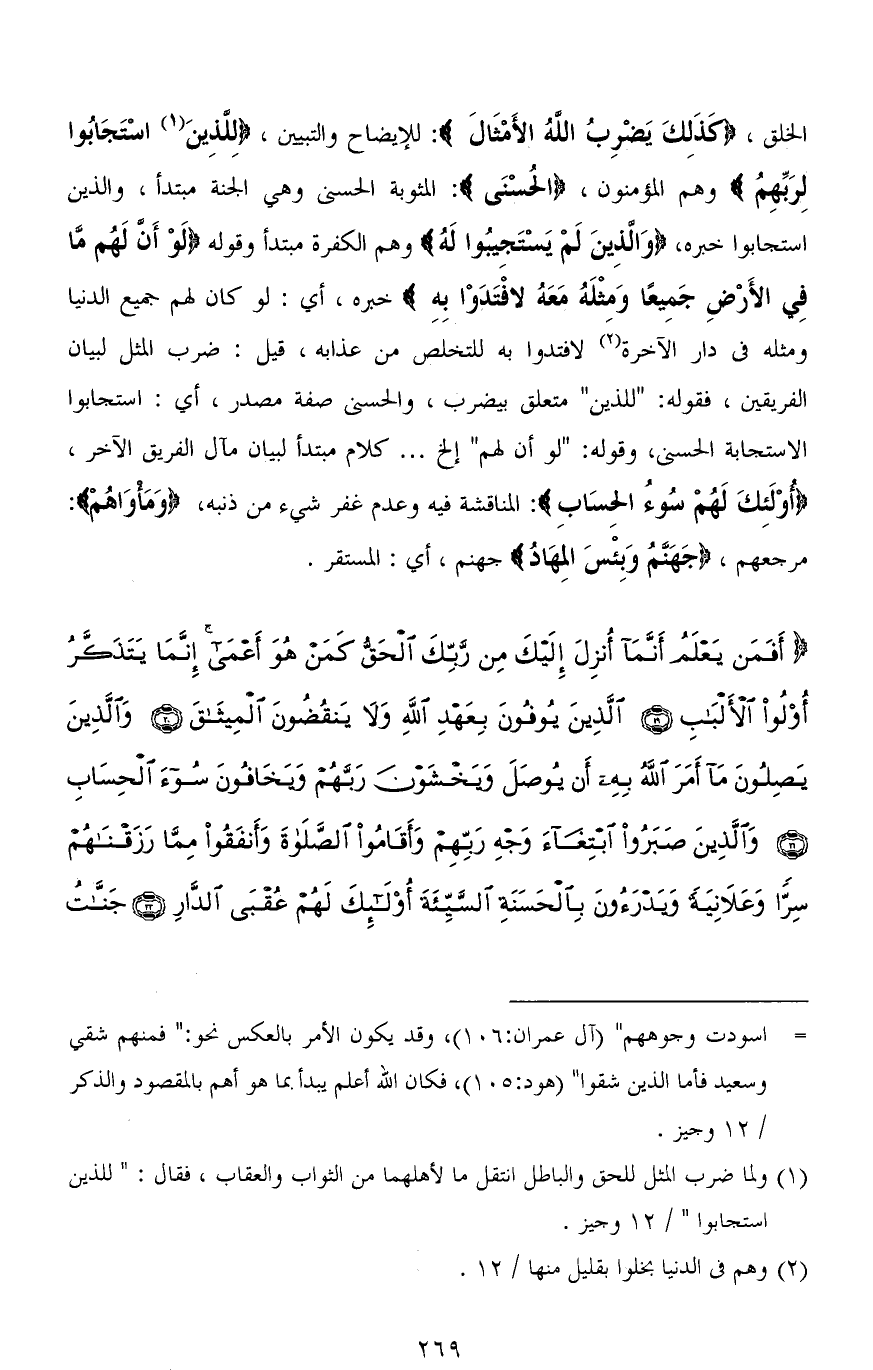 الخلق ، ﴿كَذَلِكَ يَضْرِبُ اللَّهُ الأَمْثَالَ ﴾: للإيضاح والتبيين ، ﴿لِلَّذِينَ(١) اسْتَجَابُوا
لِرَبِّهِمُ ﴾ وهم المؤمنون ، ﴿الْحُسْنَى ﴾: المثوبة الحسنى وهي الجنة مبتدأ ، والذين
استجابوا خبره، ﴿وَالَّذِينَ لَمْ يَسْتَجِيبُوا لَهُ﴾ وهم الكفرة مبتدأ وقوله ﴿لَوْ أَنَّ لَهُم مَّا
فِي الأَرْضِ جَمِيعًا وَمِثْلَهُ مَعَهُ لافْتَدَوْا بِهِ ﴾ خبره ، أي : لو كان لهم جميع الدنيا
ومثله فى دار الآخرة(٢) لافتدوا به للتخلص من عذابه ، قيل : ضرب المثل لبيان
الفريقين ، فقوله: "للذين" متعلق بيضرب ، والحسنى صفة مصدر ، أي : استجابوا
الاستجابة الحسنى، وقوله: "لو أن لهم" إلخ ... كلام مبتدأ لبيان مآل الفريق الآخر ،
﴿أُوْلَئِكَ لَهُمْ سُوءُ الحِسَابِ﴾: المناقشة فيه وعدم غفر شيء من ذنبه، ﴿وَمَأْوَاهُمْ﴾:
مرجعهم ، ﴿جَهَنَّمُ وَبِئْسَ المِهَادُ﴾ جهنم ، أي : المستقر .
﴿ أَفَمَن يَعْلَمُ أَنَّمَآ أُنزِلَ إِلَيْكَ مِن رَّبِّكَ ٱلْحَقُّ كَمَنْ هُوَ أَعْمَىٰٓ ۚ إِنَّمَا يَتَذَكَّرُ
أُوْلُواْ ٱلْأَلْبَٰبِ ۝١٩ ٱلَّذِينَ يُوفُونَ بِعَهْدِ ٱللَّهِ وَلَا يَنقُضُونَ ٱلْمِيثَٰقَ ۝٢٠ وَٱلَّذِينَ
يَصِلُونَ مَآ أَمَرَ ٱللَّهُ بِهِۦٓ أَن يُوصَلَ وَيَخْشَوْنَ رَبَّهُمْ وَيَخَافُونَ سُوٓءَ ٱلْحِسَابِ
۝٢١ وَٱلَّذِينَ صَبَرُواْ ٱبْتِغَآءَ وَجْهِ رَبِّهِمْ وَأَقَامُواْ ٱلصَّلَوٰةَ وَأَنفَقُواْ مِمَّا رَزَقْنَٰهُمْ
سِرًّا وَعَلَانِيَةً وَيَدْرَءُونَ بِٱلْحَسَنَةِ ٱلسَّيِّئَةَ أُوْلَٰٓئِكَ لَهُمْ عُقْبَى ٱلدَّارِ ۝٢٢ جَنَّٰتُ
= اسودت وجوههم" (آل عمران:١٠٦)، وقد يكون الأمر بالعكس نحو:" فمنهم شقي
وسعيد فأما الذين شقوا" (هود:١٠٥)، فكان الله أعلم يبدأ بما هو أهم بالمقصود والذكر
/ ١٢ وجيز .
(١) ولما ضرب المثل للحق والباطل انتقل ما لأهلهما من الثواب والعقاب ، فقال : " للذين
استجابوا " / ١٢ وجيز .
(٢) وهم فى الدنيا بخلوا بقليل منها / ١٢ .
٢٦٩